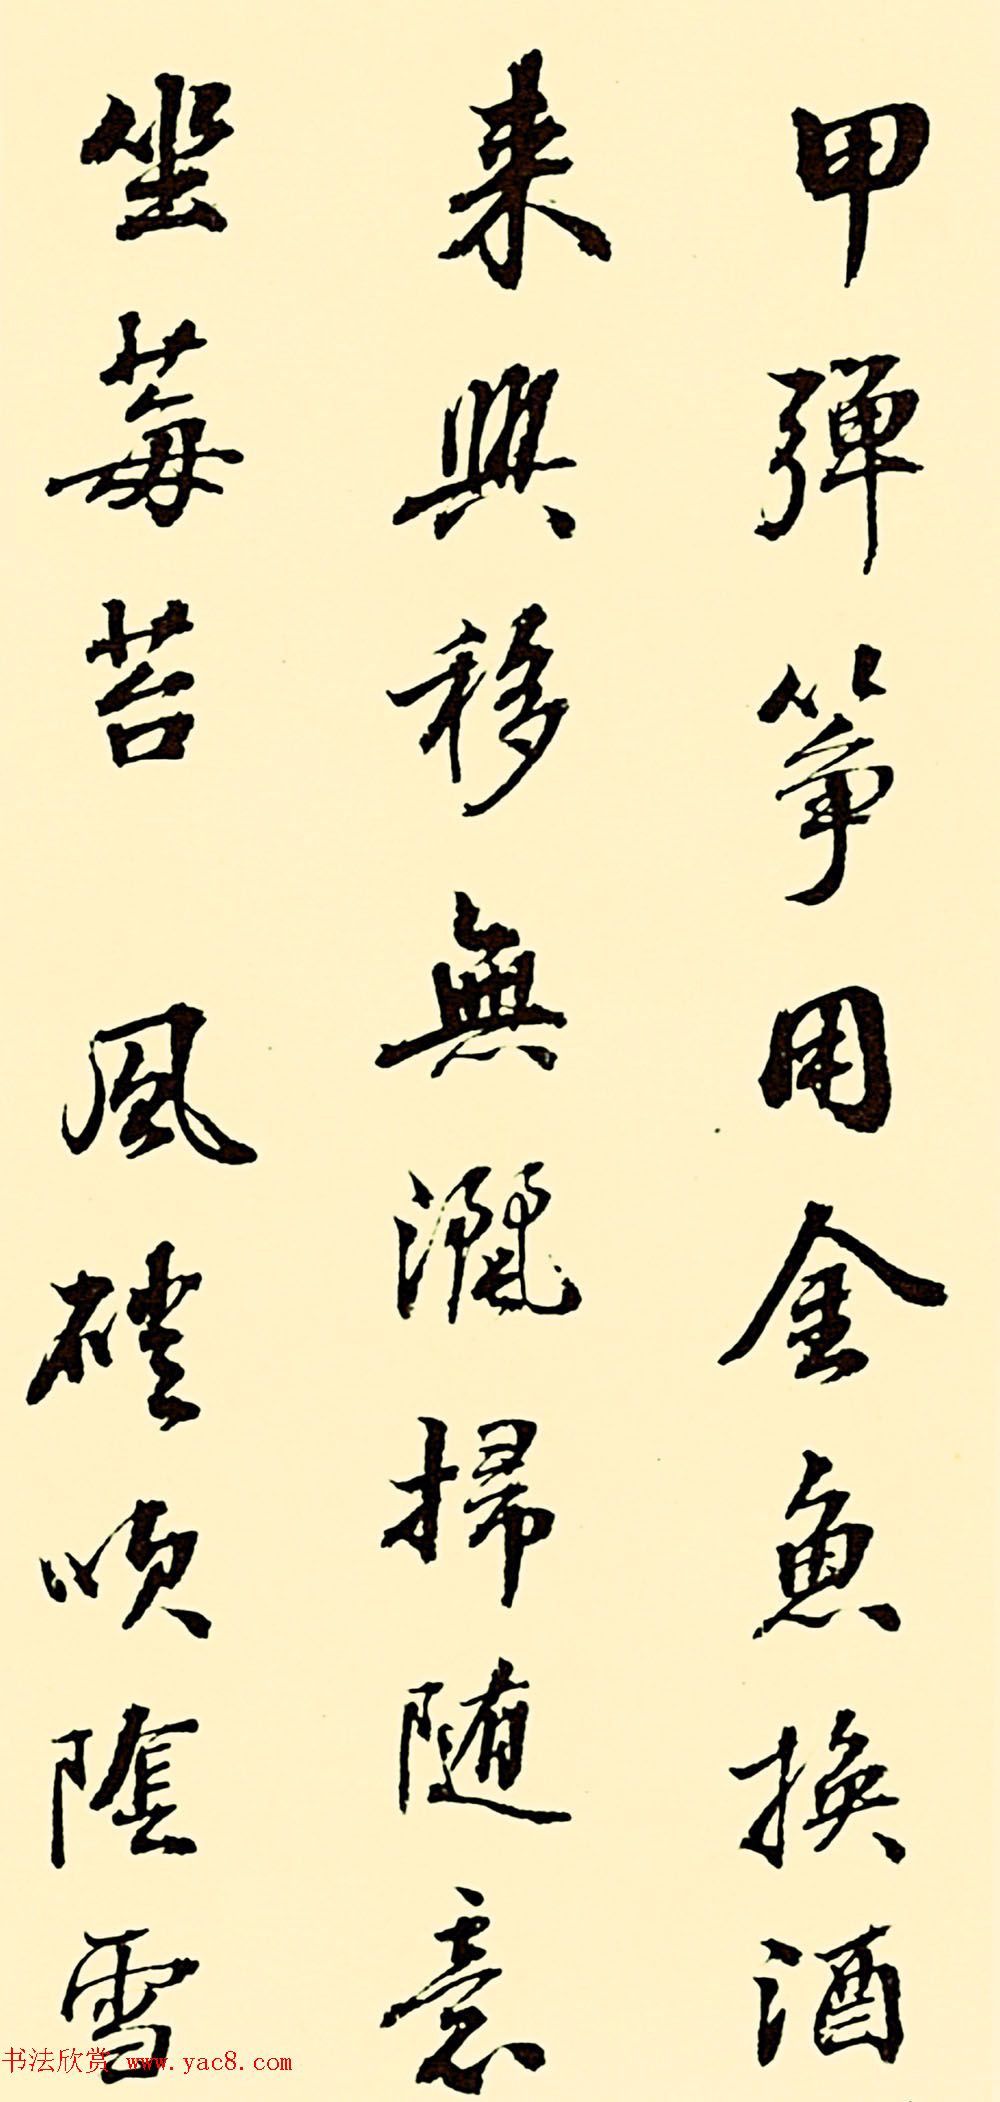 甲彈箏用金魚換酒
来興移無灑掃随意
坐莓苔 風磴吹陰雪
书法欣赏 www.yac8.com